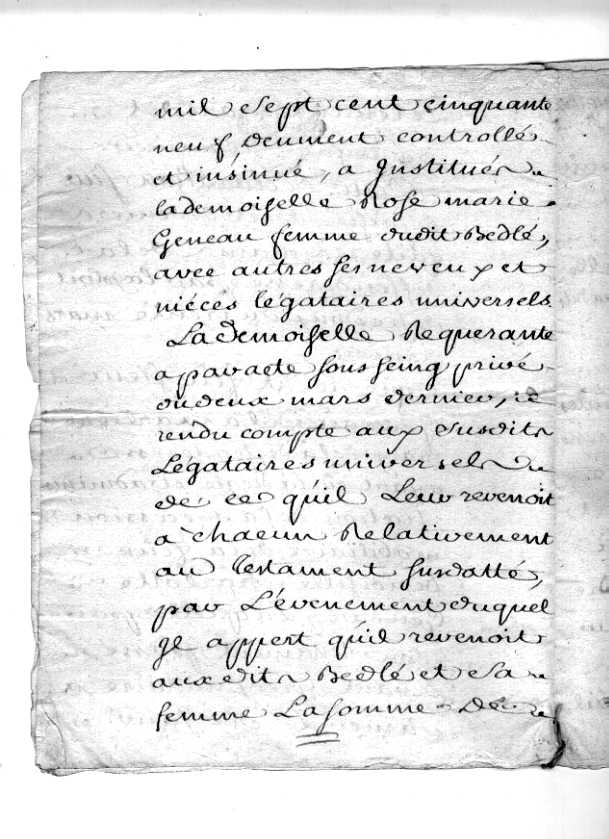 mil Sept cent cinquante
neuf Deument controllé
et insinué, a Institués
lademoiselle Rose marie
Geneau femme dudit Bedlé,
avec autres ses neveux et
niéces légataires universels.
La demoiselle Requerante
a par acte sous seing privé
du deux mars dernier,
rendu compte aux Susdits
Légataires universels
de ce qu'il Leur revenoit
a chacun Relativement
au Testament susdatté,
par L'évenement duquel
Il appert qu'il revenoit
auxdits Bedlé et Sa
femme La somme De